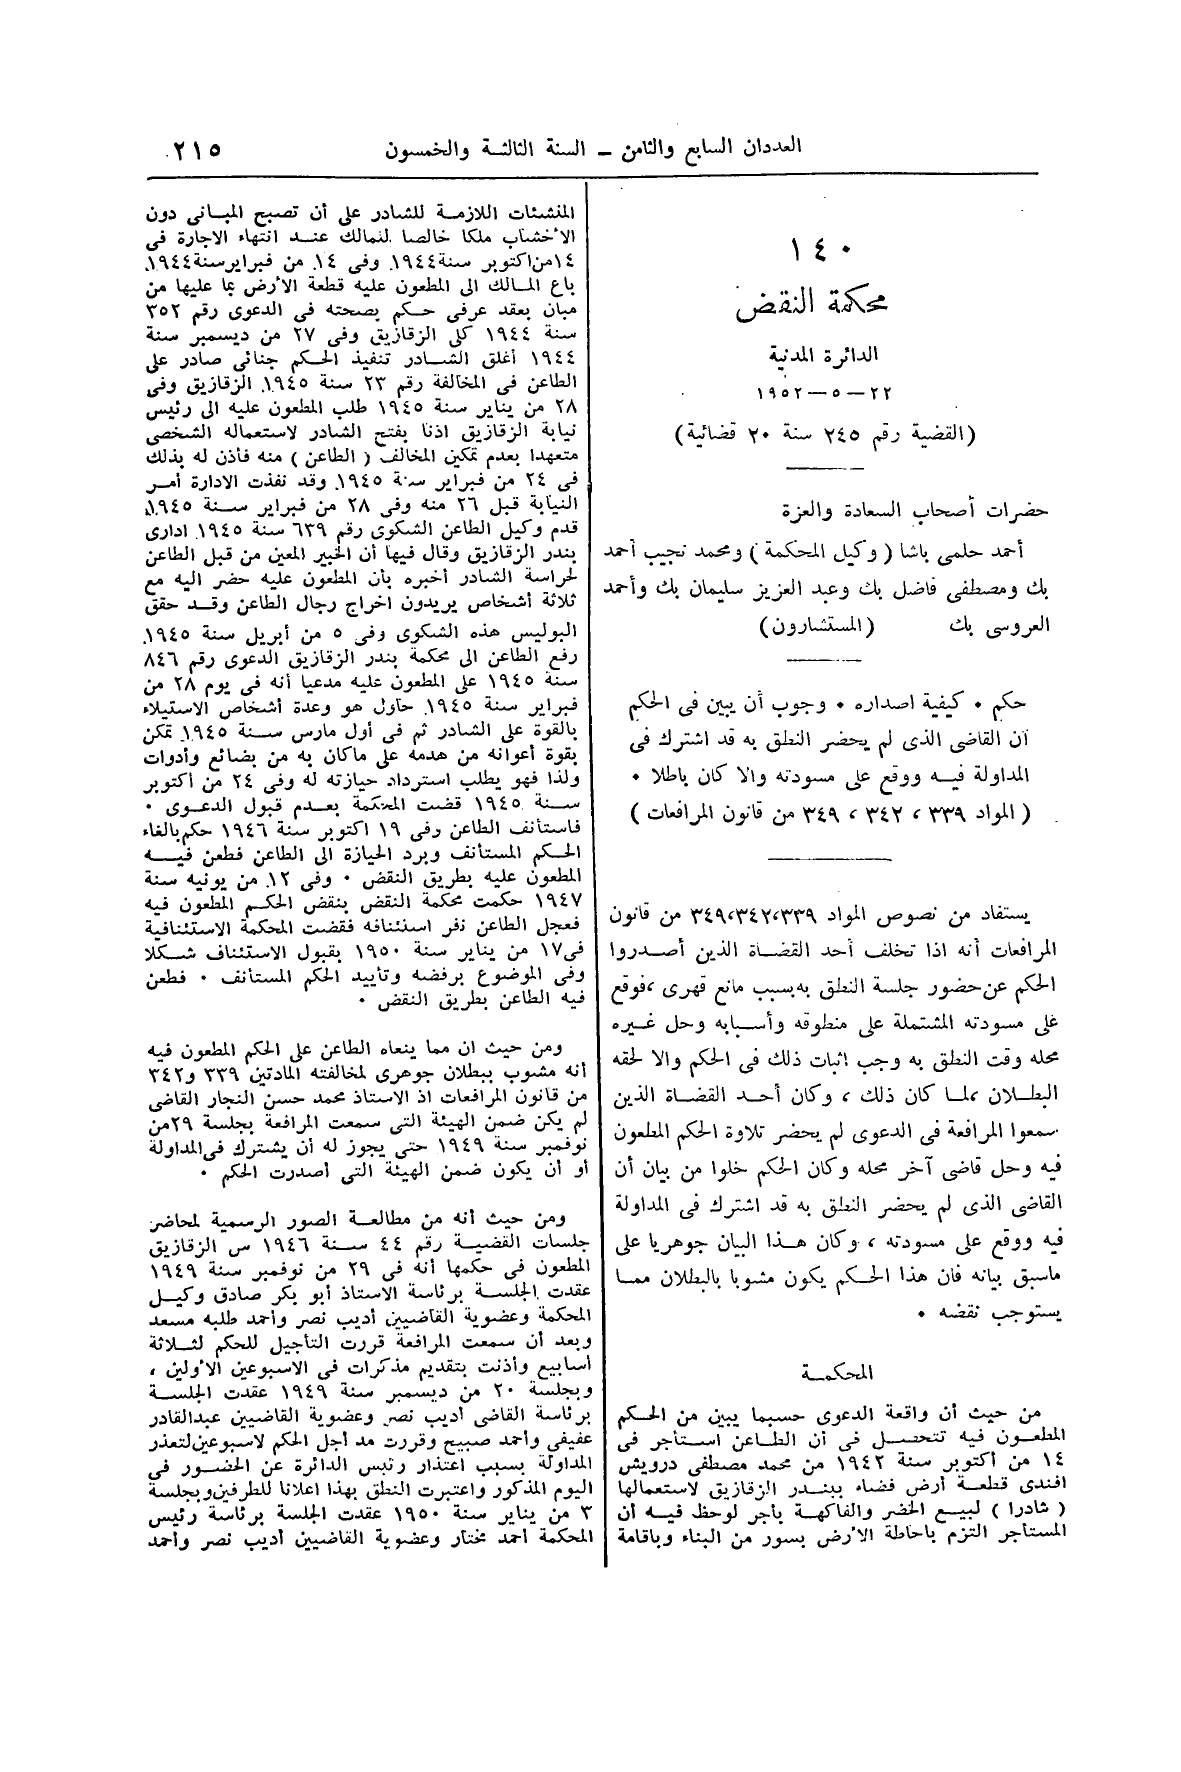 العددان السابع والثامن — السنة الثالثة والخمسون
٢١٥
١٤٠
محكمة النقض
الدائرة المدنية
٢٢ — ٥ — ١٩٥٢
(القضية رقم ٢٤٥ سنة ٢٠ قضائية)
حضرات أصحاب السعادة والعزة
أحمد حلمى باشا ( وكيل المحكمة ) ومحمد نجيب أحمد
بك ومصطفى فاضل بك وعبد العزيز سليمان بك وأحمد
العروسى بك (المستشارون)
حكم • كيفية اصداره • وجوب أن يبين فى الحكم
أن القاضى الذى لم يحضر النطق به قد اشترك فى
المداولة فيه ووقع على مسودته والا كان باطلا •
( المواد ٣٣٩ ، ٣٤٢ ، ٣٤٩ من قانون المرافعات )
يستفاد من نصوص المواد ٣٣٩،٣٤٢،٣٤٩ من قانون
المرافعات أنه اذا تخلف أحد القضاة الذين أصدروا
الحكم عن حضور جلسة النطق به بسبب مانع قهرى ،فوقع
على مسودته المشتملة على منطوقه وأسبابه وحل غيره
محله وقت النطق به وجب اثبات ذلك فى الحكم والا لحقه
البطلان ،لما كان ذلك ، وكان أحد القضاة الذين
سمعوا المرافعة فى الدعوى لم يحضر تلاوة الحكم المطعون
فيه وحل قاضى آخر محله وكان الحكم خلوا من بيان أن
القاضى الذى لم يحضر النطق به قد اشترك فى المداولة
فيه ووقع على مسودته ، وكان هذا البيان جوهريا على
ماسبق بيانه فان هذا الحكم يكون مشوبا بالبطلان مما
يستوجب نقضه •
المحكمة
من حيث أن واقعة الدعوى حسبما يبين من الحكم
المطعون فيه تتحصل فى أن الطاعن استأجر فى
١٤ من أكتوبر سنة ١٩٤٢ من محمد مصطفى درويش
افندى قطعة أرض فضاء ببندر الزقازيق لاستعمالها
( شادرا ) لبيع الخضر والفاكهة بأجر لوحظ فيه أن
المستأجر التزم باحاطة الأرض بسور من البناء وباقامة
المنشئات اللازمة للشادر على أن تصبح المبانى دون
الأخشاب ملكا خالصا لنمالك عند انتهاء الاجارة فى
١٤من اكتوبر سنة١٩٤٤ وفى ١٤ من فبرايرسنة١٩٤٤
باع المالك الى المطعون عليه قطعة الأرض بما عليها من
مبان بعقد عرفى حكم بصحته فى الدعوى رقم ٣٥٢
سنة ١٩٤٤ كلى الزقازيق وفى ٢٧ من ديسمبر سنة
١٩٤٤ أغلق الشادر تنفيذ الحكم جنائى صادر على
الطاعن فى المخالفة رقم ٢٣ سنة ١٩٤٥ الزقازيق وفى
٢٨ من يناير سنة ١٩٤٥ طلب المطعون عليه الى رئيس
نيابة الزقازيق اذنا بفتح الشادر لاستعماله الشخصى
متعهدا بعدم تمكين المخالف ( الطاعن ) منه فأذن له بذلك
فى ٢٤ من فبراير سنة ١٩٤٥ وقد نفذت الادارة أمر
النيابة قبل ٢٦ منه وفى ٢٨ من فبراير سنة ١٩٤٥
قدم وكيل الطاعن الشكوى رقم ٦٣٩ سنة ١٩٤٥ ادارى
بندر الزقازيق وقال فيها أن الخبير المعين من قبل الطاعن
لحراسة الشادر أخبره بأن المطعون عليه حضر اليه مع
ثلاثة أشخاص يريدون اخراج رجال الطاعن وقد حقق
البوليس هذه الشكوى وفى ٥ من أبريل سنة ١٩٤٥
رفع الطاعن الى محكمة بندر الزقازيق الدعوى رقم ٨٤٦
سنة ١٩٤٥ على المطعون عليه مدعيا أنه فى يوم ٢٨ من
فبراير سنة ١٩٤٥ حاول هو وعدة أشخاص الاستيلاء
بالقوة على الشادر ثم فى أول مارس سنة ١٩٤٥ تمكن
بقوة أعوانه من هدمه على ماكان به من بضائع وأدوات
ولذا فهو يطلب استرداد حيازته له وفى ٢٤ من أكتوبر
سنة ١٩٤٥ قضت المحكمة بعدم قبول الدعوى •
فاستأنف الطاعن وفى ١٩ اكتوبر سنة ١٩٤٦ حكم بالغاء
الحكم المستأنف وبرد الحيازة الى الطاعن فطعن فيه
المطعون عليه بطريق النقض • وفى ١٢ من يونيه سنة
١٩٤٧ حكمت محكمة النقض بنقض الحكم المطعون فيه
فعجل الطاعن نفر استئنافه فقضت المحكمة الاستئنافية
فى١٧ من يناير سنة ١٩٥٠ بقبول الاستئناف شكلا
وفى الموضوع برفضه وتأييد الحكم المستأنف • فطعن
فيه الطاعن بطريق النقض •
ومن حيث ان مما ينعاه الطاعن على الحكم المطعون فيه
أنه مشوب ببطلان جوهرى لمخالفته المادتين ٣٣٩ و٣٤٢
من قانون المرافعات اذ الاستاذ محمد حسن النجار القاضى
لم يكن ضمن الهيئة التى سمعت المرافعة بجلسة ٢٩من
نوفمبر سنة ١٩٤٩ حتى يجوز له أن يشترك فى المداولة
أو أن يكون ضمن الهيئة التى أصدرت الحكم •
ومن حيث أنه من مطالعة الصور الرسمية لمحاضر
جلسات القضية رقم ٤٤ سنة ١٩٤٦ س الزقازيق
المطعون فى حكمها أنه فى ٢٩ من نوفمبر سنة ١٩٤٩
عقدت الجلسة برئاسة الاستاذ أبو بكر صادق وكيل
المحكمة وعضوية القاضيين أديب نصر وأحمد طلبه مسعد
وبعد أن سمعت المرافعة قررت التأجيل للحكم لثلاثة
أسابيع وأذنت بتقديم مذكرات فى الاسبوعين الأولين ،
وبجلسة ٢٠ من ديسمبر سنة ١٩٤٩ عقدت الجلسة
برئاسة القاضى أديب نصر وعضوية القاضيين عبدالقادر
عفيفى وأحمد صبيح وقررت مد أجل الحكم لاسبوعين لتعذر
المداولة بسبب اعتذار رئيس الدائرة عن الحضور فى
اليوم المذكور واعتبرت النطق بهذا اعلانا للطرفين وبجلسة
٣ من يناير سنة ١٩٥٠ عقدت الجلسة برئاسة رئيس
المحكمة أحمد مختار وعضوية القاضيين أديب نصر وأحمد